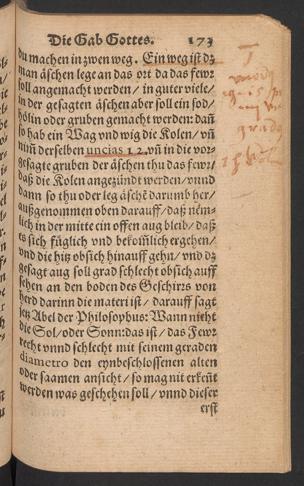 Die Gab Gottes. 173
du machen in zwen weg. Ein weg ist dz
man äschen lege an das ort da das fewr
soll angemacht werden / in guter viele /
in der gesagten äschen aber soll ein sod /
hölin oder gruben gemacht werden: dañ
so hab ein Wag vnd wig die Kolen / vñ
nim̃ derselben uncias 12. vñ in die vor-
gesagte gruben der äschen thu das fewr /
daß die Kolen angezündt werden / vnnd
dann so thu oder leg äschē darumb her /
außgenommen oben darauff / daß nēm-
lich in der mitte ein offen aug bleib / daß
es sich füglich vnd bekom̃lich ergehen /
vnd die hitz obsich hinauff gehn / vnd dz
gesagt aug soll grad schlecht obsich auff
sehen an den boden des Geschirrs von
herd darinn die materi ist / darauff sagt
jen Abel der Philosophus: Wann nicht
die Sol / oder Sonn: das ist / das Fewr
recht vnnd schlecht mit seinem geraden
diametro den eynbeschlossenen alten
oder saamen ansicht / so mag nit erkeñt
werden was geschehen soll / vnnd dieser
erst